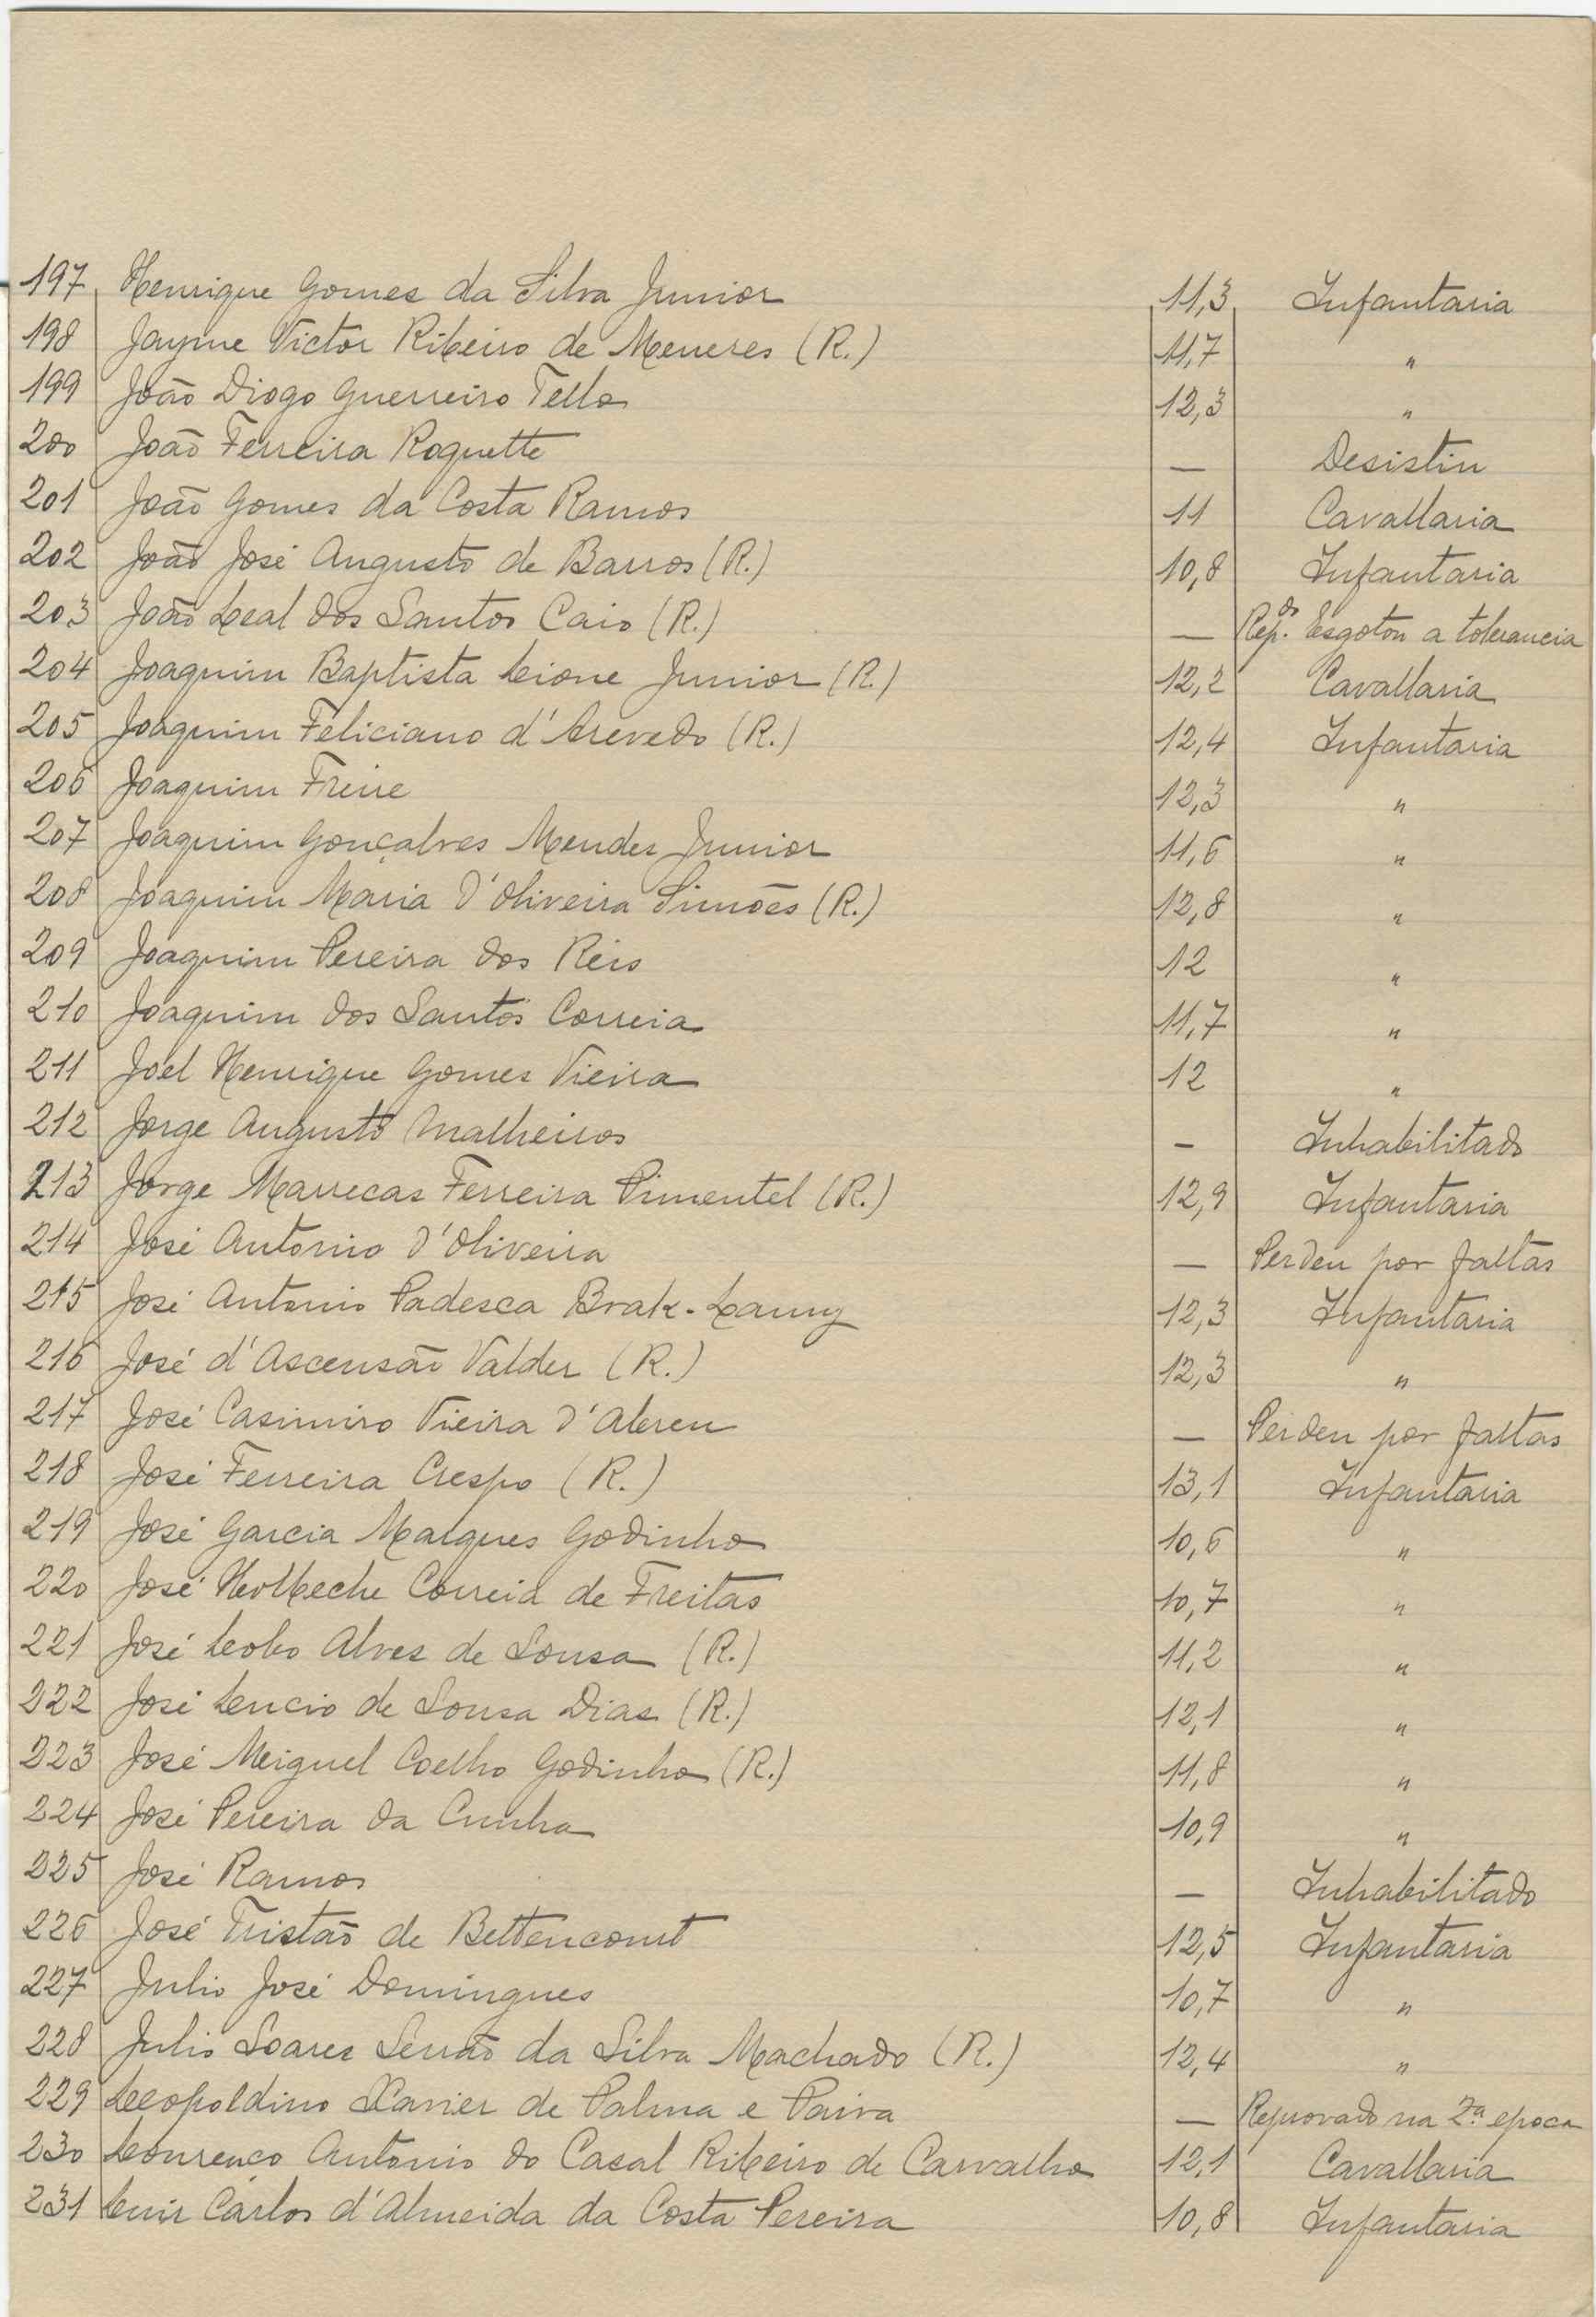 197 Henrique Gomes da Silva Junior 11,3 Infantaria
198 Jayme Victor Ribeiro de Menezes (R.) 11,7 "
199 João Diogo Guerreiro Tello 12,3 "
200 João Ferreira Roquette — Desistiu
201 João Gomes da Costa Ramos 11 Cavallaria
202 João José Augusto de Barros (R.) 10,8 Infantaria
203 João Leal dos Santos Caio (R.) — Rep.do Esgotou a tolerancia
204 Joaquim Baptista Leone Junior (R.) 12,2 Cavallaria
205 Joaquim Feliciano d'Azevedo (R.) 12,4 Infantaria
206 Joaquim Freire 12,3 "
207 Joaquim Gonçalves Mendes Junior 11,6 "
208 Joaquim Maria d'Oliveira Simões (R.) 12,8 "
209 Joaquim Pereira dos Reis 12 "
210 Joaquim dos Santos Correia 11,7 "
211 Joel Henrique Gomes Vieira 12 "
212 Jorge Augusto Malheiros — Inhabilitado
213 Jorge Marrecas Ferreira Pimentel (R.) 12,9 Infantaria
214 José Antonio d'Oliveira — Perdeu por faltas
215 José Antonio Padesca Brak-Lamy 12,3 Infantaria
216 José d'Ascensão Valdez (R.) 12,3 "
217 José Casimiro Vieira d'Abreu — Perdeu por faltas
218 José Ferreira Crespo (R.) 13,1 Infantaria
219 José Garcia Marques Godinho 10,6 "
220 José Holbeche Correia de Freitas 10,7 "
221 José Lobo Alves de Sousa (R.) 11,2 "
222 José Lucio de Sousa Dias (R.) 12,1 "
223 José Miguel Coelho Godinho (R.) 11,8 "
224 José Pereira da Cunha 10,9 "
225 José Ramos — Inhabilitado
226 José Tristão de Bettencourt 12,5 Infantaria
227 Julio José Domingues 10,7 "
228 Julio Soares Serrão da Silva Machado (R.) 12,4 "
229 Leopoldino Xavier de Palma e Paiva — Reprovado na 2.ª epoca
230 Lourenço Antonio do Casal Ribeiro de Carvalho 12,1 Cavallaria
231 Luiz Carlos d'Almeida da Costa Pereira 10,8 Infantaria